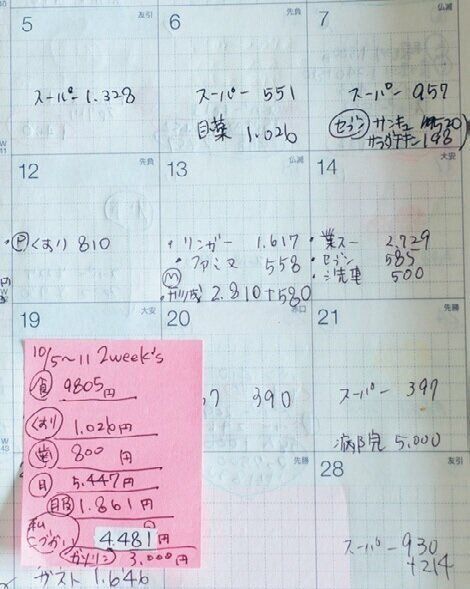 5 友引
スーパー 1.328
6 先負
スーパー 551
目薬 1.026
7 仏滅
スーパー 957
セブン サンキュ 530
サラダチキン 198
12 先負
くすり 810
13 仏滅
・リンガー 1.617
・ファミマ 558
2.810+580
14 大安
・業スー 2.729
・セブン 585
・洗車 500
19 大安
20
390
21 先勝
スーパー 397
病院 5.000
先勝
28 友引
スーパー 930
+214
10/5〜11 2week's
食 9805円
くすり 1.026円
800円
日 5.447円
1.861円
私
こづかい 4.481円
ガソリン 3.000円
ガスト 1.646